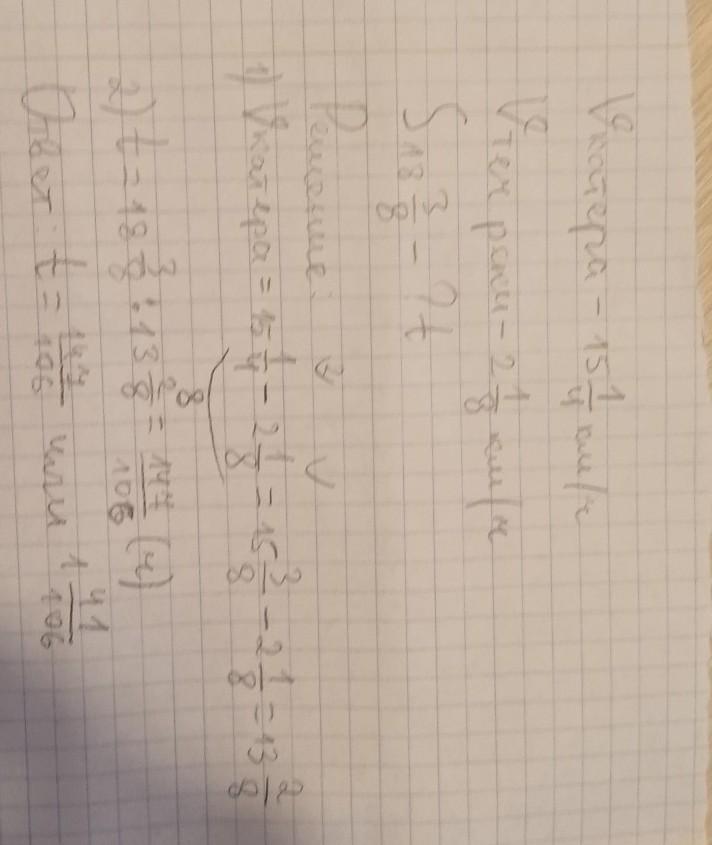 V катера - 15 1/4 км/ч
V теч реки - 2 1/8 км/ч
S 18 3/8 - ? t
Решение:
1) V катера = 15 1/4 - 2 1/8 = 15 3/8 - 2 1/8 = 13 2/8
2) t = 18 3/8 : 13 2/8 = 147/106 (ч)
Ответ: t = 147/106 или 1 41/106